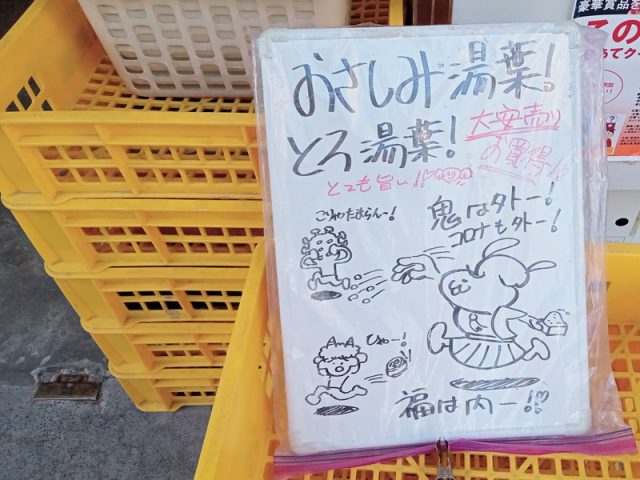 おさしみ湯葉!
とろ湯葉!
大安売り
お買得!!
とても旨い!!
鬼は外ー!
コロナも外ー!
こりゃたまらんー!
ひゃー!
福は内ー!!
豪華賞品を
この